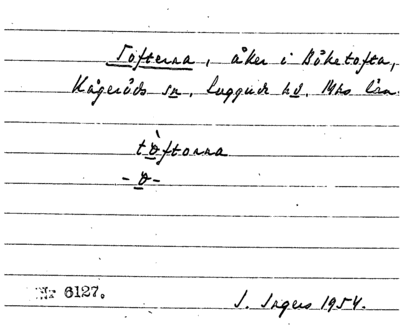 Tofterna, åker i Böketofta,
Kågeröds sn, Luggude hd, Mhs län.
tòftorna
-o-
Nr 6127.
I. Ingers 1954.